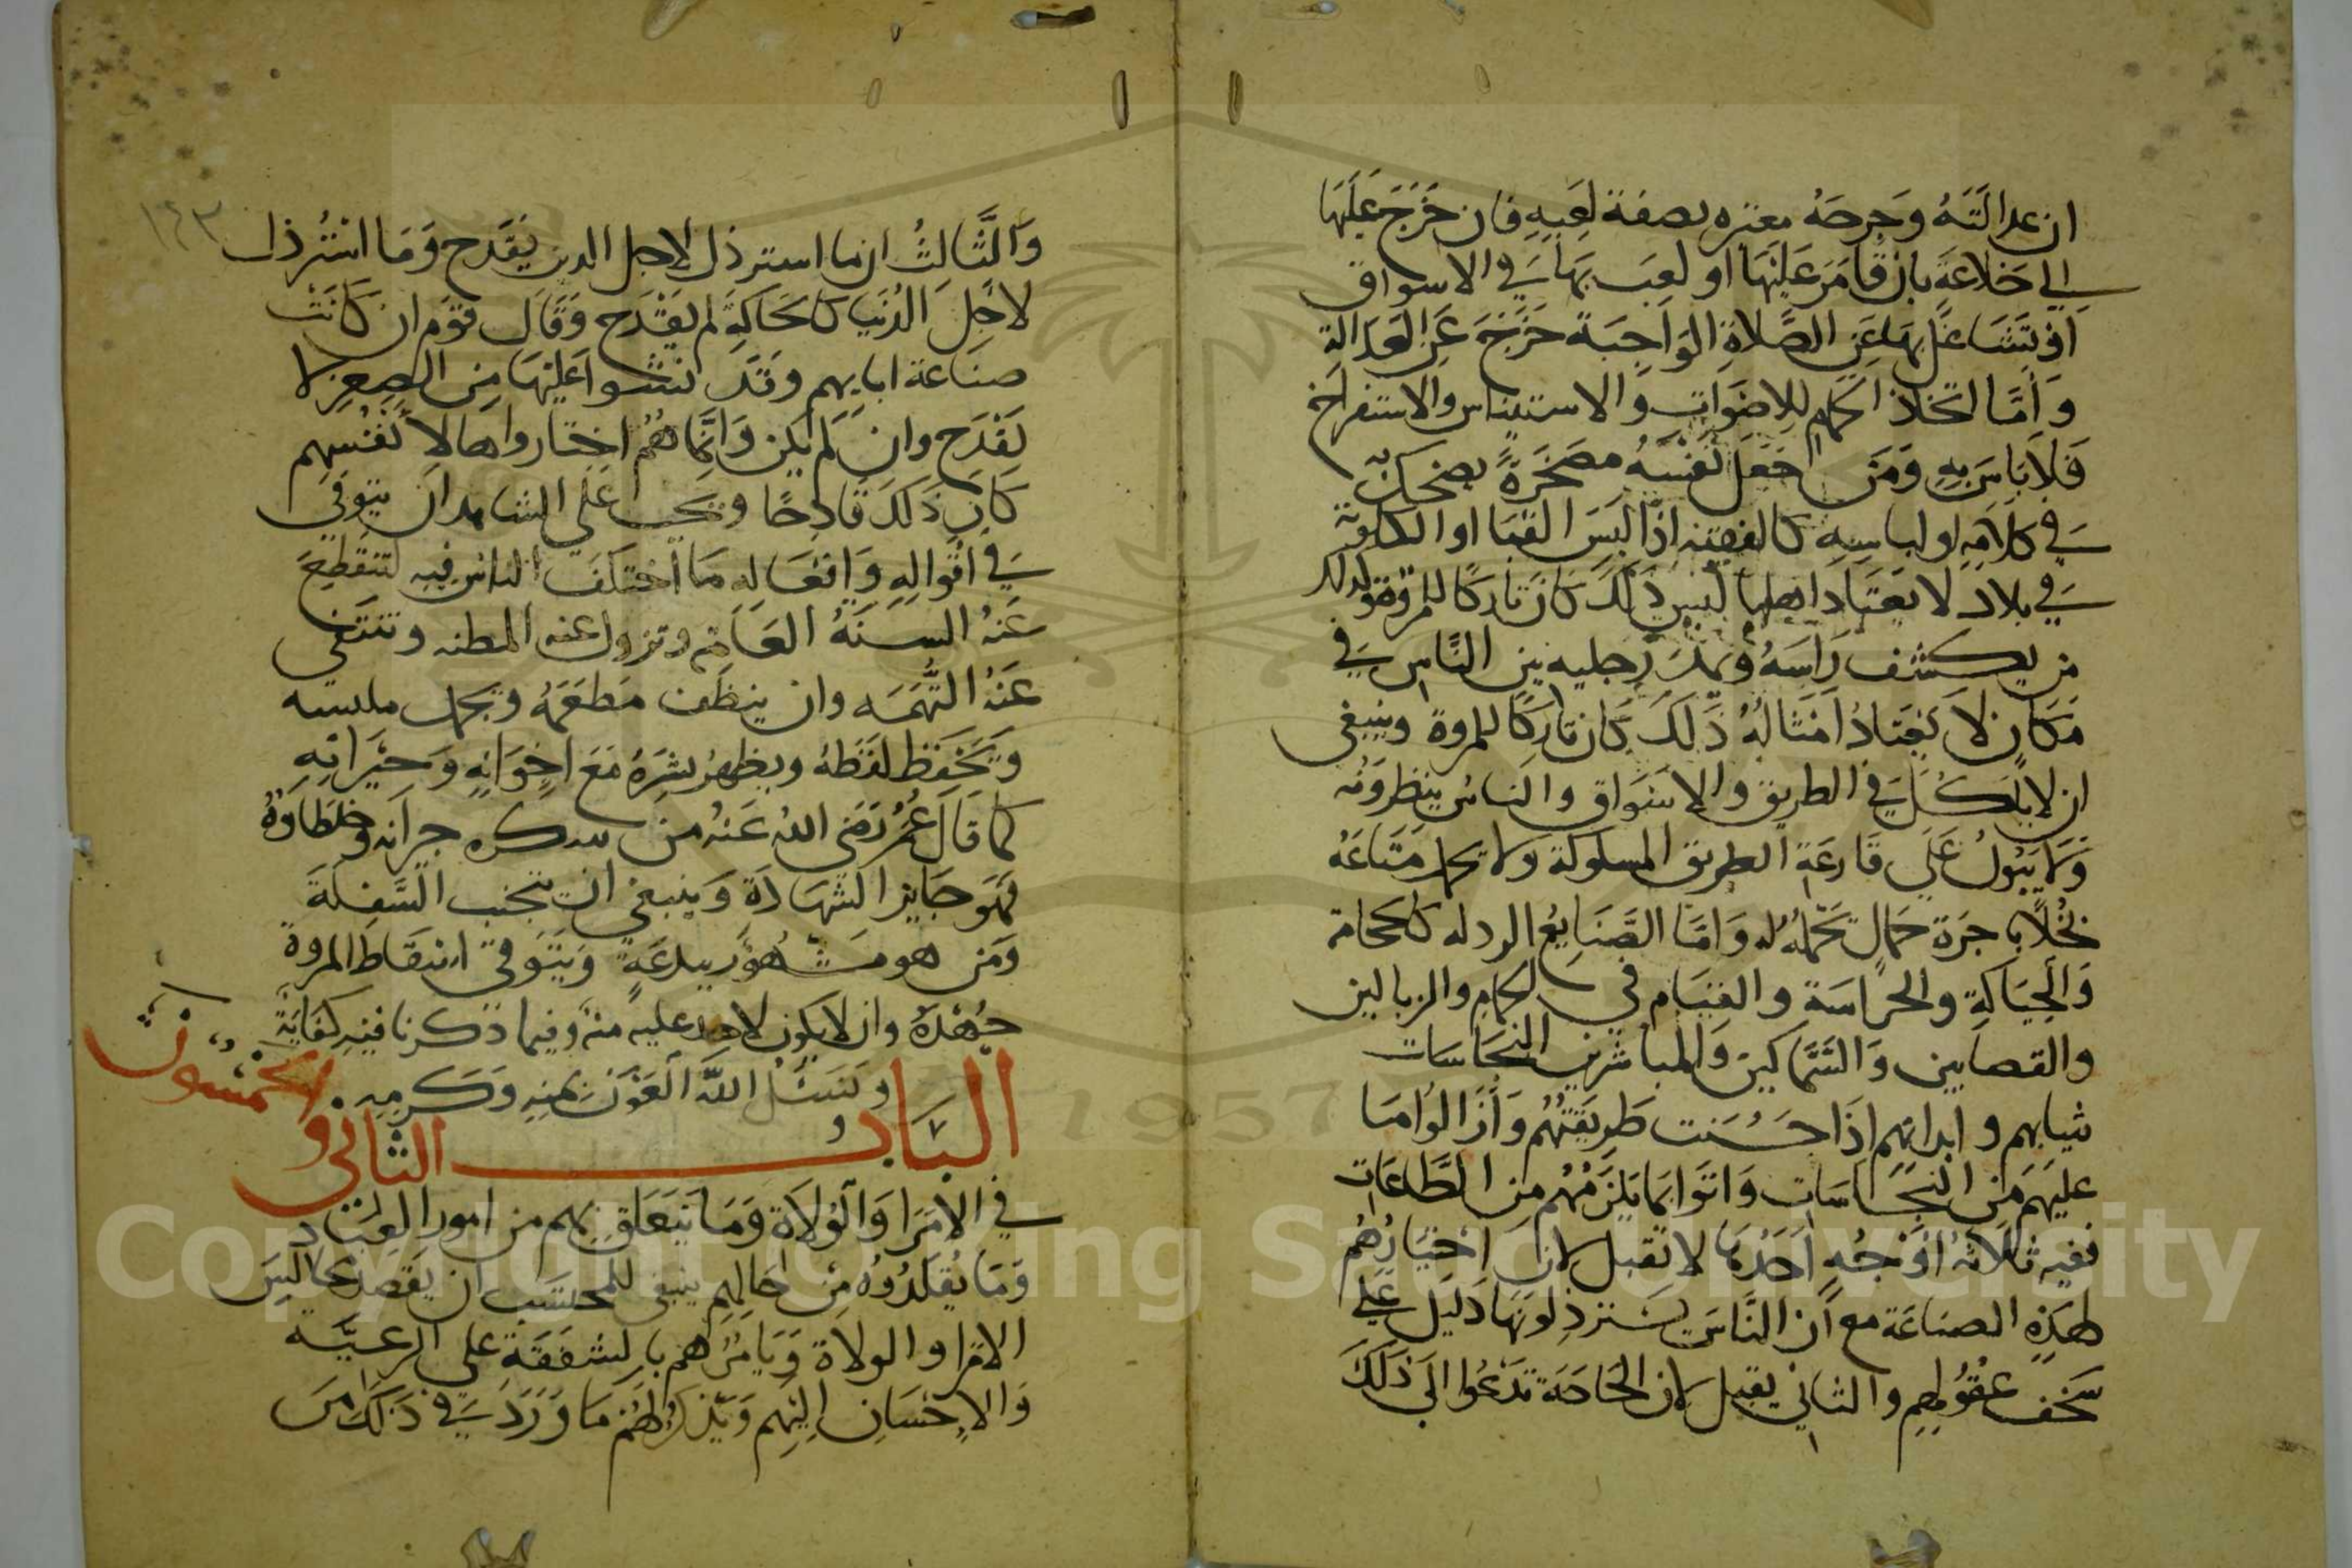 ان عدالَتَهُ وَجرحَهُ معتبره بصفة لَعِبِهِ فان خَرَجَ عَلَيهَا
الي خَلاعَةَ بان قامَرَ عَلَيْهَا او لَعِبَ بهَا في الاسواق
اوْ تَشَاغَل بِهَا عَنِ الصَّلاةِ الوَاجِبَة خَرَجَ عَنِ العَدَالة
وَأمَّا اتّخاذ الحمام للاصْوَاتِ والاستيناس والاستفراخ
فَلا بَاسَ بِهِ وَمَن جَعَل نَفْسَهُ مصخَرَةً يضحك به
في كلامِهِ او لباسِهِ كالفقيه اذا لَبِسَ القبَا او الكلوته
في بلاد لا يعتَاد اهلها لُبس ذَلكَ كان تاركا للمروة وكذلك
من يكشف رَاسَهُ وَيمدّ رِجليه بين النَّاس في
مَكان لا يَعْتَادُ امْثالُهُ ذَلكَ كان تاركًا للمروة وينبغي
ان لا يَاكُلَ في الطريق والاسْوَاق والناسُ ينظرونه
وَلا يَبُولُ عَلَي قَارعَةِ الطريق المسلوكة ولا يحمل مَتَاعَهُ
بُخْلًا باجرَة حَمالٍ تَحْملُهُ له وَامَّا الصَّنَايعُ الردله كالحجامة
وَالحِيَاكةِ والحراسَة والقيَام في الحمام والزبالين
والقصابين وَالسَّمَّاكينَ وَالمباشرين النجَاسَات
بثيابهم وابدانهم اذَا حَسُنَت طَرِيقَتُهُم وَأزَالوا مَا
عليهَم من النجَاسَات وَاتوا بما يَلزَمُهُم من الطَّاعَات
ففيه ثلاثهُ اوْجُهٍ احَدُهَا لا تقبل لان اختيارُهُم
لهَذِهِ الصنَاعَة مع أن النَّاسَ يسْتَرذِلونَهَا دَليل عَلي
سَخَف عُقُولِهم والثاني يقبل لان الحَاجَة تَدْعُوا الي ذَلكَ
١٤٣
وَالثَّالثُ ان ما استرذل لاجل الدين يَقدَح وَمَا استُرذل
لاجْلِ الدُنيَا كالحَاكةِ لم يَقْدَح وَقَال قوم ان كانَتْ
صنَاعة ابايهم وَقد نشوا عَليْهَا مِن الصِغر لا
يَقْدَح وان لم يكن وَانّما هُمْ اختاروها لأنفُسِهم
كان ذَلكَ قَادحًا ويجب عَلي الشاهد ان يتوقي
في اقوَالِهِ وَافعَاله مَا اختلَفَ الناس فيه لتنقَطِعَ
عَنهُ السنَةُ العَامّة وتزول عنه المظنه وتنتفي
عَنْهُ التُّهمَه وان ينظف مَطعَمَهُ ويجمل ملبسه
وَيَحْفَظ لفظَهُ ويظهرُ بِشرَهُ مَعَ اخْوَانِهِ وَجيرانِهِ
كما قَال عُمَرُ رَضي اللهُ عَنْهُ من شكره جيرانه وخلطاوهُ
فهَو جَايز الشَهَادَة وَينبغي ان يتجنب السَّفلَةَ
وَمَن هو مشْهُوُر ببدعَةٍ وَيتَوقي اسْقاط المروة
جُهْدَهُ وان لا يكون لاحد عليه منهٌ وفيما ذكرنا فيه كفَايَة
ونسَئَل اللهَ العَوْن بمنه وَكَرمِه
البَابُ الثاني والخمْسُونْ
في الامَرَا وَالوُلاة وَمَا يَتعَلق بهم من امورِ العِبَاد
وَمَا يُقلدُوهُ مِن احَالِهِم ينبغي للمحتسَب ان يقصدَ مجالسَ
الامرا والولاة وَيَامُرُهم بالشفقَة علي الرعيَّه
وَالاِحْسَانِ اليهِم وَيذكرُ لهُم مَا وَرَدَ في ذَلكَ مِنَ